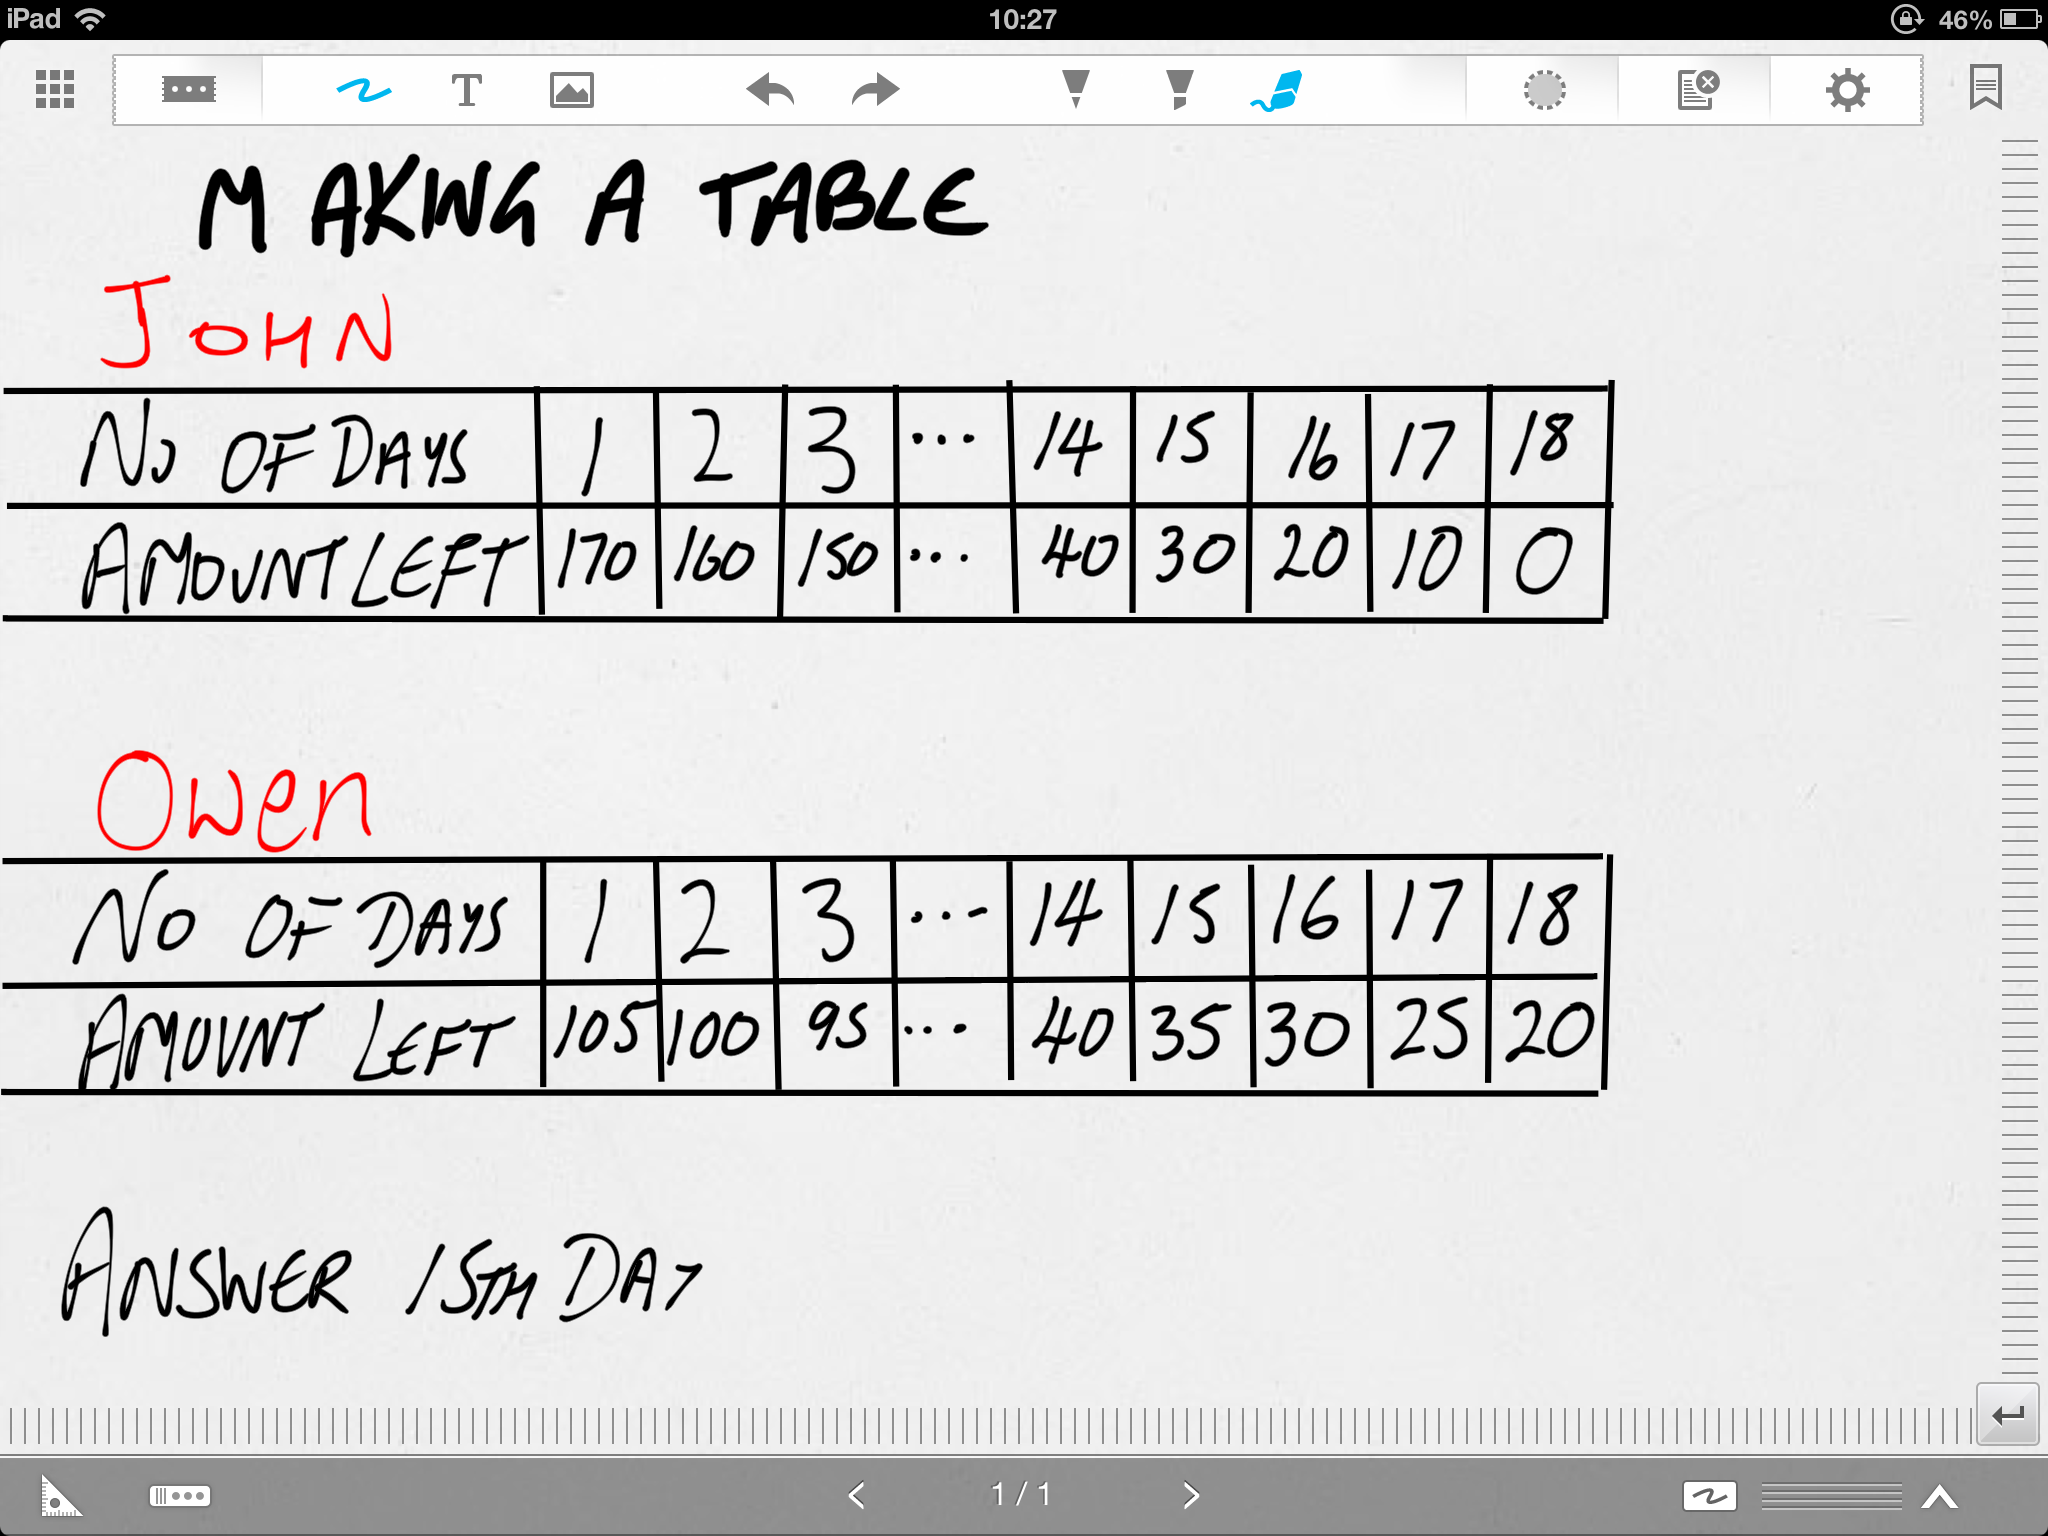 iPad 10:27 46%
T
MAKING A TABLE
JOHN
No OF DAYS 1 2 3 ... 14 15 16 17 18
AMOUNT LEFT 170 160 150 ... 40 30 20 10 0
Owen
No OF DAYS 1 2 3 ... 14 15 16 17 18
AMOUNT LEFT 105 100 95 ... 40 35 30 25 20
ANSWER 15TH DAY
1 / 1